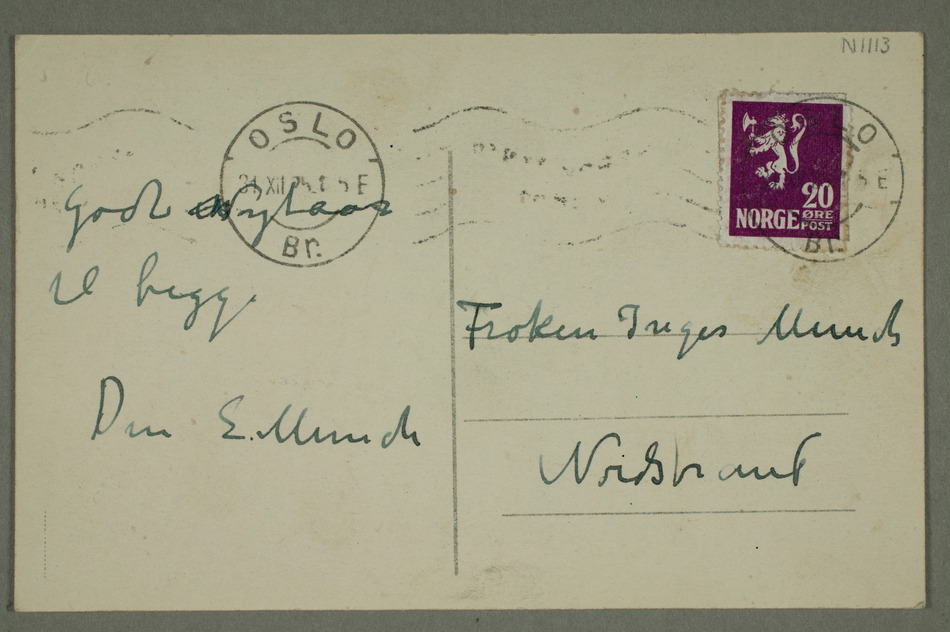 N1113
OSLO
31 XII 25.8 5 E
Br.
20
NORGE ØRE
POST
Br.
Godt Nytaar
til begge
Din E. Munch
Frøken Inger Munch
Nordstrand